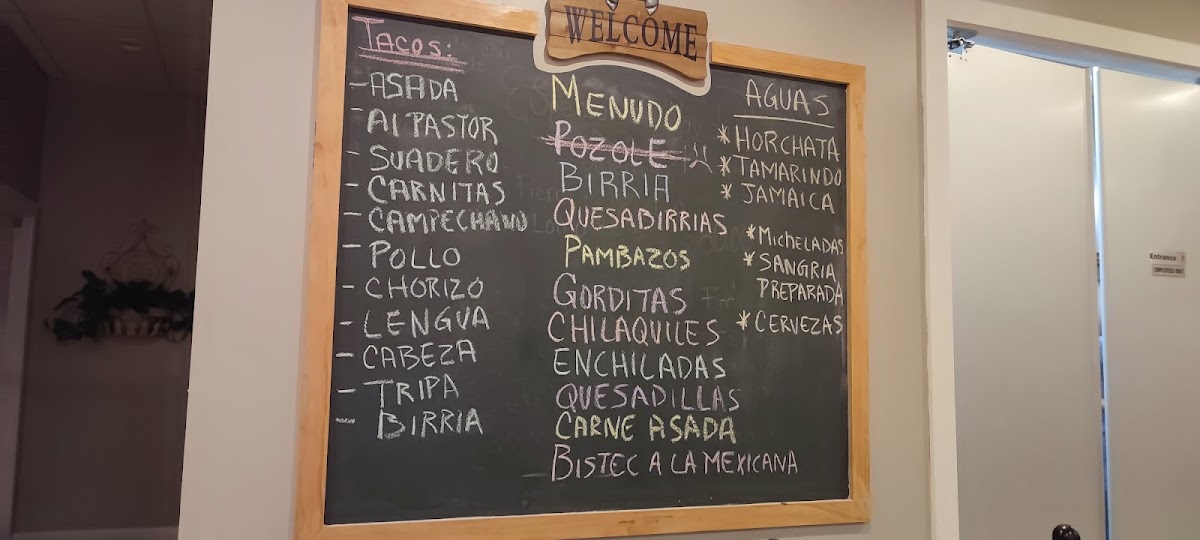 WELCOME
TACOS:
- ASADA
- Al PASTOR
- SUADERO
- CARNITAS
- CAMPECHANO
- POLLO
- CHORIZO
- LENGUA
- CABEZA
- TRIPA
- BIRRIA
MENUDO
POZOLE
BIRRIA
QUESABIRRIAS
PAMBAZOS
GORDITAS
CHILAQUILES
ENCHILADAS
QUESADILLAS
CARNE ASADA
BISTEC A LA MEXICANA
AGUAS
* HORCHATA
* TAMARINDO
* JAMAICA
* MicheLADAS
* SANGRIA
PREPARADA
* CERVEZAS
Entrance
EMPLOYEES ONLY